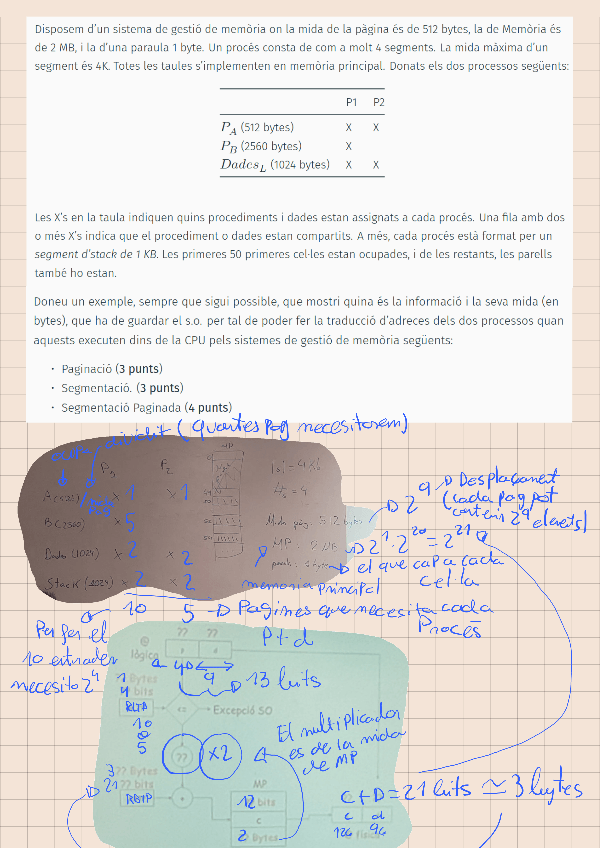 Disposem d'un sistema de gestió de memòria on la mida de la pàgina és de 512 bytes, la de Memòria és
de 2 MB, i la d'una paraula 1 byte. Un procés consta de com a molt 4 segments. La mida màxima d'un
segment és 4K. Totes les taules s'implementen en memòria principal. Donats els dos processos següents:
P1 P2
P_A (512 bytes) X X
P_B (2560 bytes) X
Dades_L (1024 bytes) X X
Les X's en la taula indiquen quins procediments i dades estan assignats a cada procés. Una fila amb dos
o més X's indica que el procediment o dades estan compartits. A més, cada procés està format per un
segment d'stack de 1 KB. Les primeres 50 primeres cel·les estan ocupades, i de les restants, les parells
també ho estan.
Doneu un exemple, sempre que sigui possible, que mostri quina és la informació i la seva mida (en
bytes), que ha de guardar el s.o. per tal de poder fer la traducció d'adreces dels dos processos quan
aquests executen dins de la CPU pels sistemes de gestió de memòria següents:
• Paginació (3 punts)
• Segmentació. (3 punts)
• Segmentació Paginada (4 punts)
(Quantes Pag necesitarem)
P1 P2
A(512) x 1 x 1
B(2560) x 5
Dades(1024) x 2 x 2
Stack(1024) x 2 x 2
10 5 → Pagines que necesita cada
Procés
2^9 → Desplaçament
(cada pag pot
contenir 2^9 elements)
2^1 · 2^20 = 2^21
el que cap a cada
cel·la
memoria principal
Per fer el
10 entrades
necesito 2^4
@
lògica
?? ??
P + d
4 9 → 13 bits
1 Bytes
4 bits
RLTP
Excepció SO
10
5
?? x2
El multiplicador
es de la mida
de MP
3 ?? Bytes
21 ?? bits
RBTP
+
MP
12 bits
c
2 Bytes
C + D = 21 bits ≃ 3 bytes
c d
12b 9b